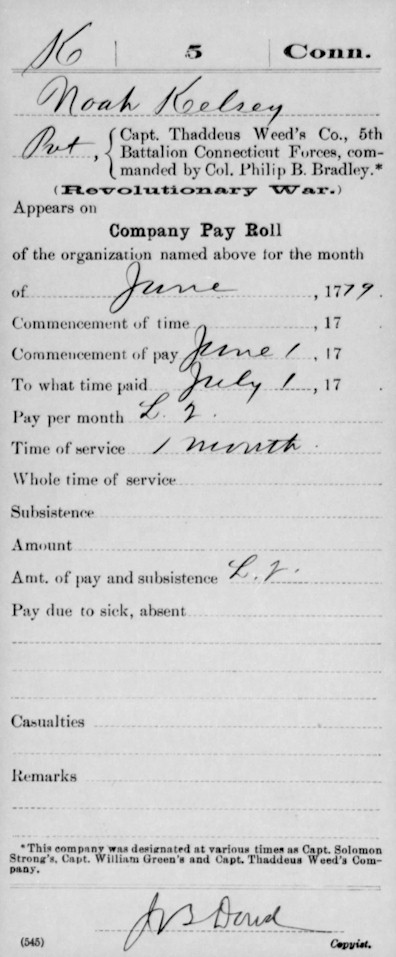 K 5 Conn.
Noah Kelsey
Pvt, { Capt. Thaddeus Weed's Co., 5th
Battalion Connecticut Forces, com-
manded by Col. Philip B. Bradley.*
(Revolutionary War.)
Appears on
Company Pay Roll
of the organization named above for the month
of June, 1779.
Commencement of time, 17 .
Commencement of pay June 1, 17 .
To what time paid July 1, 17 .
Pay per month L. 2.
Time of service 1 month.
Whole time of service
Subsistence
Amount
Amt. of pay and subsistence L. 2.
Pay due to sick, absent
Casualties
Remarks
*This company was designated at various times as Capt. Solomon
Strong's, Capt. William Green's and Capt. Thaddeus Weed's Com-
pany.
(545) Copyist.